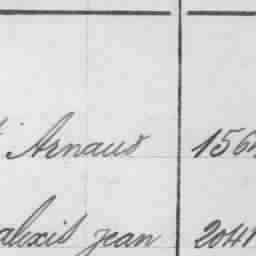 Arnaud 156
alexis jean 2041